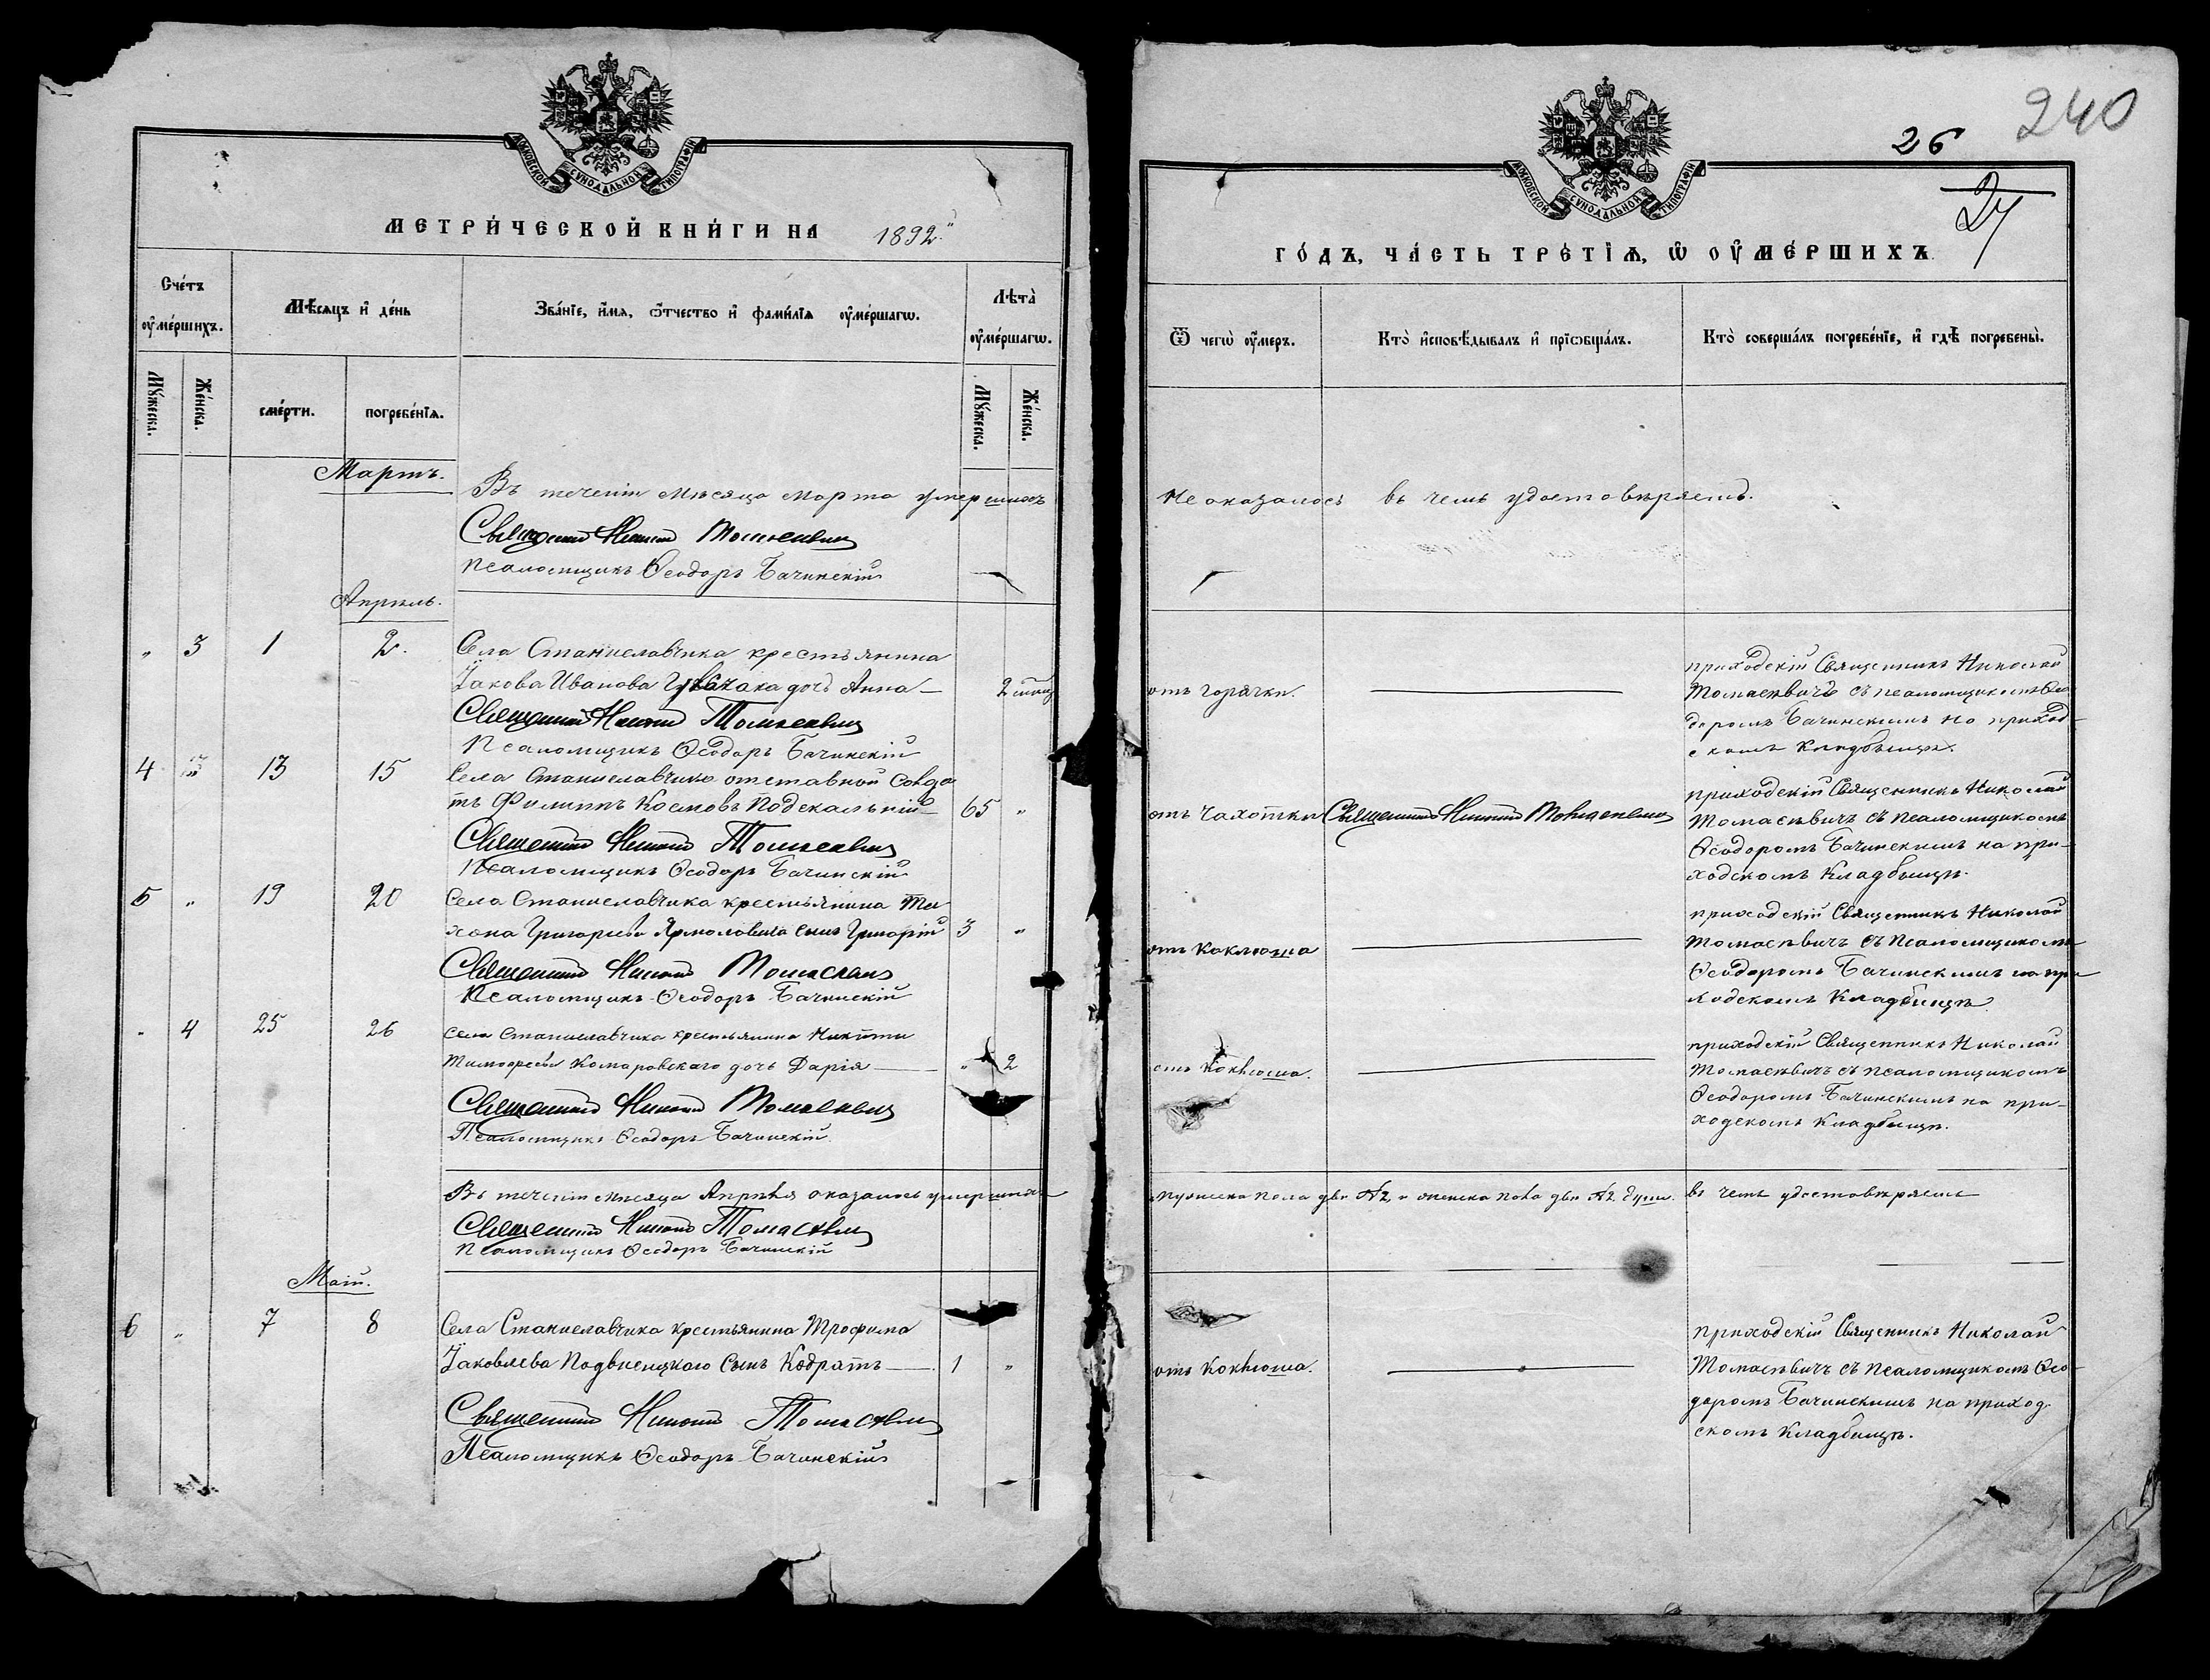 МОСКОВСКОЙ СѴНОДАЛЬНОЙ ТИПОГРАФІИ
МЕТРИ́ЧЕСКОЙ КНИ́ГИ НА 1892.
Сче́тъ оу҆ме́ршихъ.
Мѣ́сяцъ и҆ де́нь
Зва́нїе, и҆́мѧ, ѻ҆́тчество и҆ фами́лїѧ оу҆ме́ршагѡ.
Лѣ́та оу҆ме́ршагѡ.
Мꙋ́жеска.
Же́нска.
сме́рти.
погребе́нїѧ.
Мꙋ́жеска.
Же́нска.
Мартъ.
Въ теченіи мѣсяца Марта умершихъ
Священникъ Николай Томасевичъ
Псаломщикъ Ѳеодоръ Бачинскій
Апрѣль.
" 3 1 2.
Села Станиславчика крестьянина
Іакова Иванова дочь Анна — 2
Священникъ Николай Томасевичъ
Псаломщикъ Ѳеодоръ Бачинскій
4 13 15
Села Станиславчика отставной Солда
тъ Филиппъ Космовъ Подскальній — 65 "
Священникъ Николай Томасевичъ
Псаломщикъ Ѳеодоръ Бачинскій
5 " 19 20
Села Станиславчика крестьянина Ти-
хона Григорьева Ярмоловича сынъ Григорій 3 "
Священникъ Николай Томасевичъ
Псаломщикъ Ѳеодоръ Бачинскій
" 4 25 26
Села Станиславчика крестьянина Никиты
Тимофеева Комаровскаго дочь Дарія — " 2
Священникъ Николай Томасевичъ
Псаломщикъ Ѳеодоръ Бачинскій
Въ теченіи мѣсяца Апрѣля оказалось умершихъ
Священникъ Николай Томасевичъ
Псаломщикъ Ѳеодоръ Бачинскій
Май.
6 " 7 8
Села Станиславчика крестьянина Трофима
Іаковлева Подвисоцкаго сынъ Кодратъ — 1 "
Священникъ Николай Томасевичъ
Псаломщикъ Ѳеодоръ Бачинскій
240
26
27
МОСКОВСКОЙ СѴНОДАЛЬНОЙ ТИПОГРАФІИ
ГО́ДЪ, ЧА́СТЬ ТРЕ́ТІѦ, Ѡ҆ ОУ҆МЕ́РШИХЪ.
Ѿ чегѡ̀ оу҆́меръ.
Кто̀ и҆сповѣ́дывалъ и҆ прїѡбща́лъ.
Кто̀ соверша́лъ погребе́нїе, и҆ гдѣ̀ погребены̀.
не оказалось въ чемъ удостовѣряемъ.
отъ горячки.
приходскій Священникъ Николай
Томасевичъ съ псаломщикомъ Ѳео
доромъ Бачинскимъ на приход-
скомъ кладбищѣ.
отъ чахотки
Священникъ Николай Томасевичъ
приходскій Священникъ Николай
Томасевичъ съ псаломщикомъ
Ѳеодоромъ Бачинскимъ на при-
ходскомъ кладбищѣ.
отъ коклюша
приходскій Священникъ Николай
Томасевичъ съ псаломщикомъ
Ѳеодоромъ Бачинскимъ на при
ходскомъ кладбищѣ
отъ коклюша.
приходскій Священникъ Николай
Томасевичъ съ псаломщикомъ
Ѳеодоромъ Бачинскимъ на при-
ходскомъ кладбищѣ.
мужеска пола двѣ №2 и женска пола двѣ №2 души. въ чемъ удостовѣряемъ
отъ коклюша.
приходскій Священникъ Николай
Томасевичъ съ псаломщикомъ Ѳео-
доромъ Бачинскимъ на приход-
скомъ кладбищѣ.